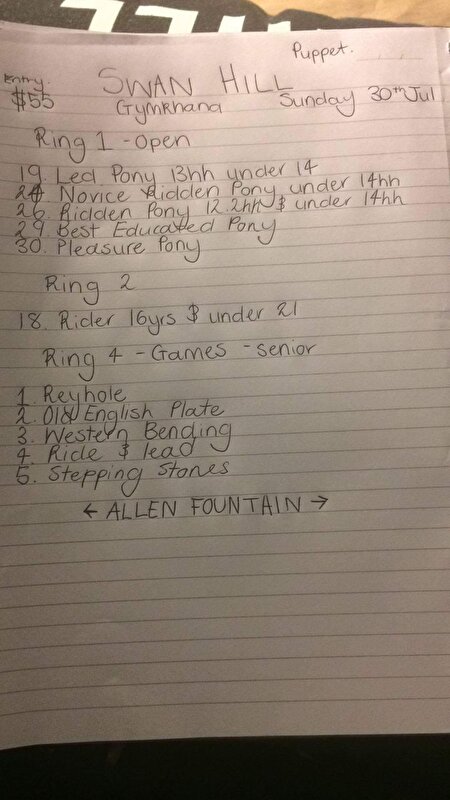 Puppet.
Entry. SWAN HILL
$55 Gymkhana Sunday 30th Jul
Ring 1 - Open
19. Led Pony 13hh under 14
24. Novice Ridden Pony under 14hh
26. Ridden Pony 12.2hh & under 14hh
29. Best Educated Pony
30. Pleasure Pony
Ring 2
18. Rider 16yrs & under 21
Ring 4 - Games - senior
1. Keyhole
2. Old English Plate
3. Western Bending
4. Ride & lead
5. Stepping Stones
← ALLEN FOUNTAIN →